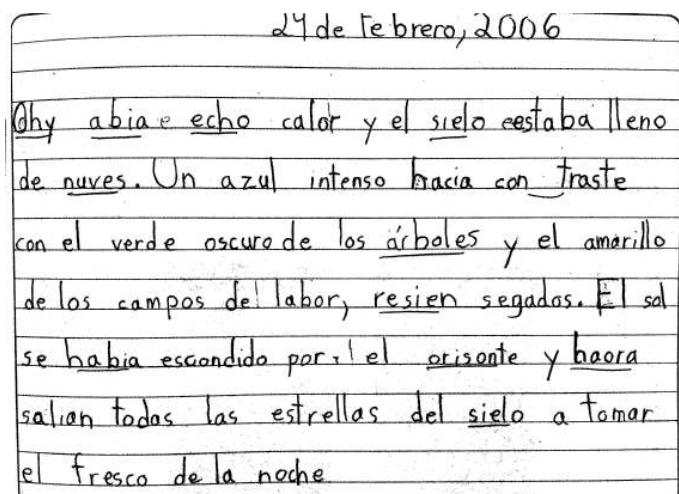 24 de Febrero, 2006
Ohy abia e echo calor y el sielo eestaba lleno
de nuves. Un azul intenso hacia con traste
con el verde oscuro de los árboles y el amarillo
de los campos del labor, resien segados. El sol
se habia escondido por el orisonte y haora
salian todas las estrellas del sielo a tomar
el fresco de la noche